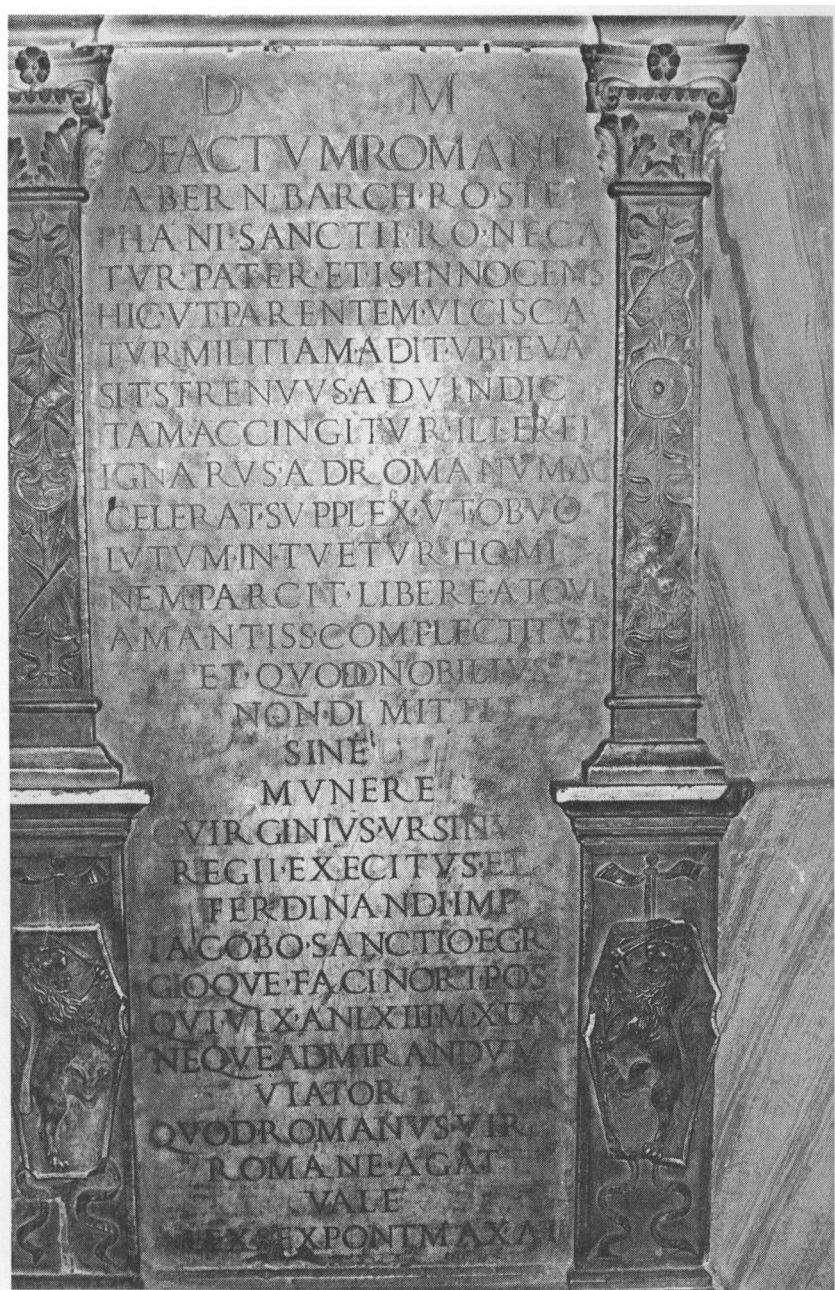 D M
O FACTVM ROMANE
A·BERN·BARCH·RO·STE
PHANI·SANCTII·RO·NECA
TVR·PATER·ET·IS·INNOCENS
HIC·VT·PARENTEM·VLCISCA
TVR·MILITIAM·ADIT·VBI·EVA
SIT·STRENVVS·AD·VINDIC
TAM·ACCINGITVR·ILLE·REI
IGNARVS·AD·ROMANVM·AC
CELERAT·SVPPLEX·VT·OBVO
LVTVM·INTVETVR·HOMI
NEM·PARCIT·LIBERE·ATQVE
AMANTISS·COMPLECTITVR
ET·QVOD·NOBILIVS
NON·DIMITTIT
SINE
MVNERE
VIRGINIVS·VRSINVS
REGII·EXECITVS·ET
FERDINANDI·IMP
IACOBO·SANCTIO·EGR
GIOQVE·FACINORI·POS
QVI·VIX·AN·LXIII·M·X·D
NEQVE·ADMIRANDVM
VIATOR
QVOD·ROMANVS·VIR
ROMANE·AGAT
VALE
ALEX·SEX·PONT·MAX·